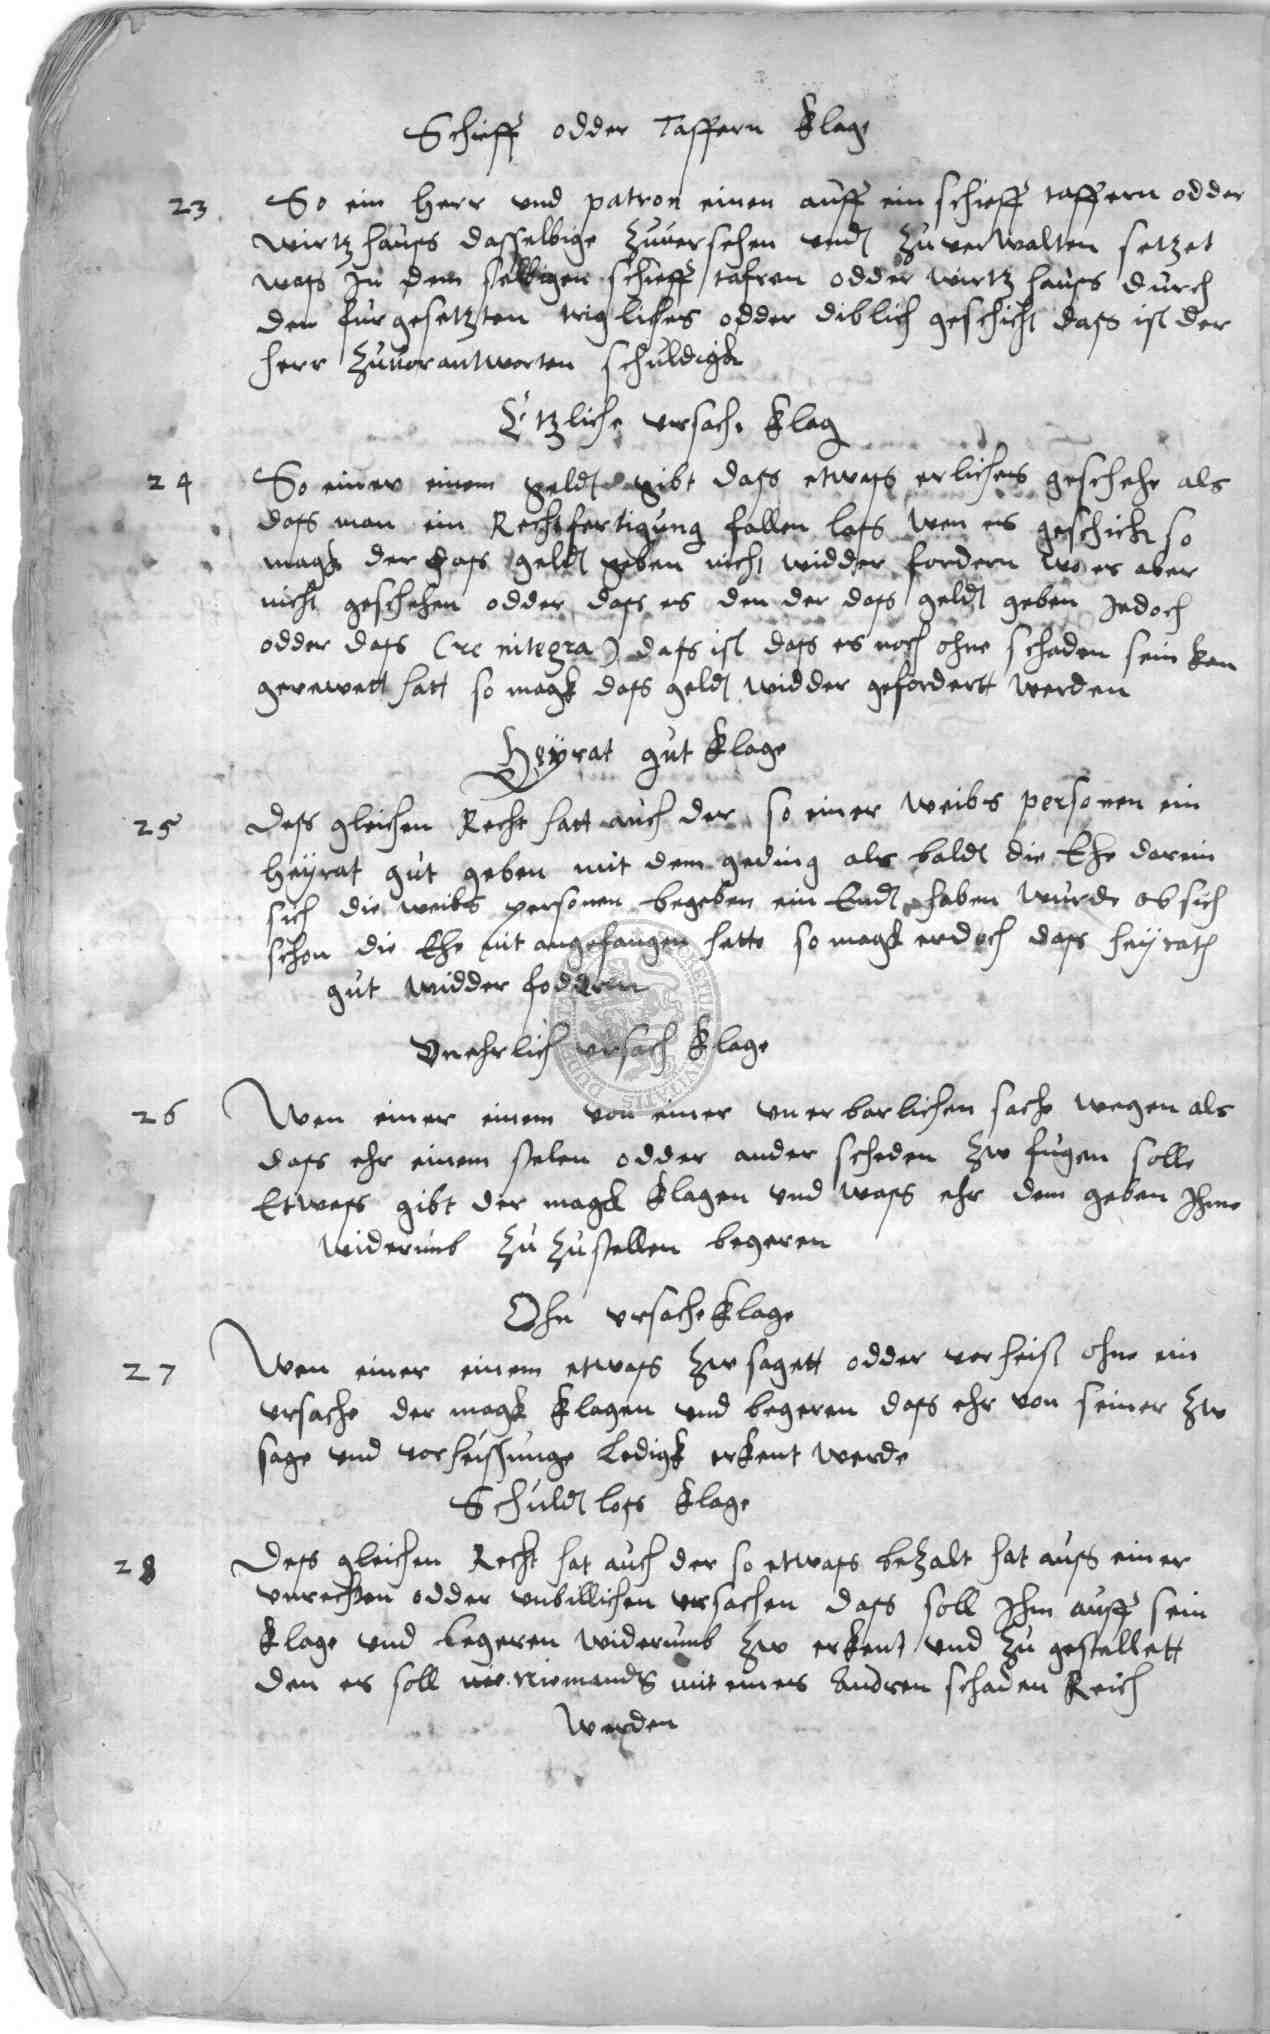 Schieff odder Taffern klage
23 So ein herr vnd patron einen auff ein schieff taffern odder
wirtzhauss dasselbige zuuersehen vnd zuuerwalten setzet
wass in dem selbigen schieff tafren odder wirtzhauss durch
den furgesetzten odder diblich geschicht dass ist der
herr zuuorantworten schuldigk
vrsach klag
24 So einer einem geldt gibt dass etwass erlichers geschehe als
dass man ein Rechtfertigung fallen lass wen es geschicht so
magk der dass geldt geben nicht widder fordern wo es aber
nicht geschehen odder dass es den der dass geldt geben Jedoch
odder dass (re integra) dass ist dass es noch ohne schaden sein kan
gerewett hatt so magk dass geldt widder gefordertt werden
Heyrat gut klage
25 Dess gleichen Recht hatt auch der so einer weibs personen ein
heyrat gut geben mit dem geding als baldt die Ehe darein
sich die weibs personen begeben ein Endt haben wurde ob sich
schon die Ehe nit angefangen hette so magk erdoch dass heyrath
gut widder foddern
Vnehrlich vrsach klage
26 Wen einer einem von einer vnerbarlichen sache wegen als
dass ehr einem stelen odder ander scheden zw fugen solle
Etwass gibt der magk klagen vnd wass ehr dem geben Ihme
widerumb zu zustellen begeren
Ohn vrsache klage
27 Wen einer einem etwass zw sagett odder verheist ohne ein
vrsache der magk klagen vnd begeren dass ehr von seiner zw
sage vnd vorheissunge Ledigk erkent werde
Schuldt loss klage
28 Dess gleichen Recht hat auch der so etwass bezalt hat auss einer
vnrechten odder vnbillichen vrsachen dass soll Ihm auff sein
klage vnd begeren widerumb zw erkent vnd zu gestellett
den es soll Niemandts mit eines Andren schaden Reich
werden